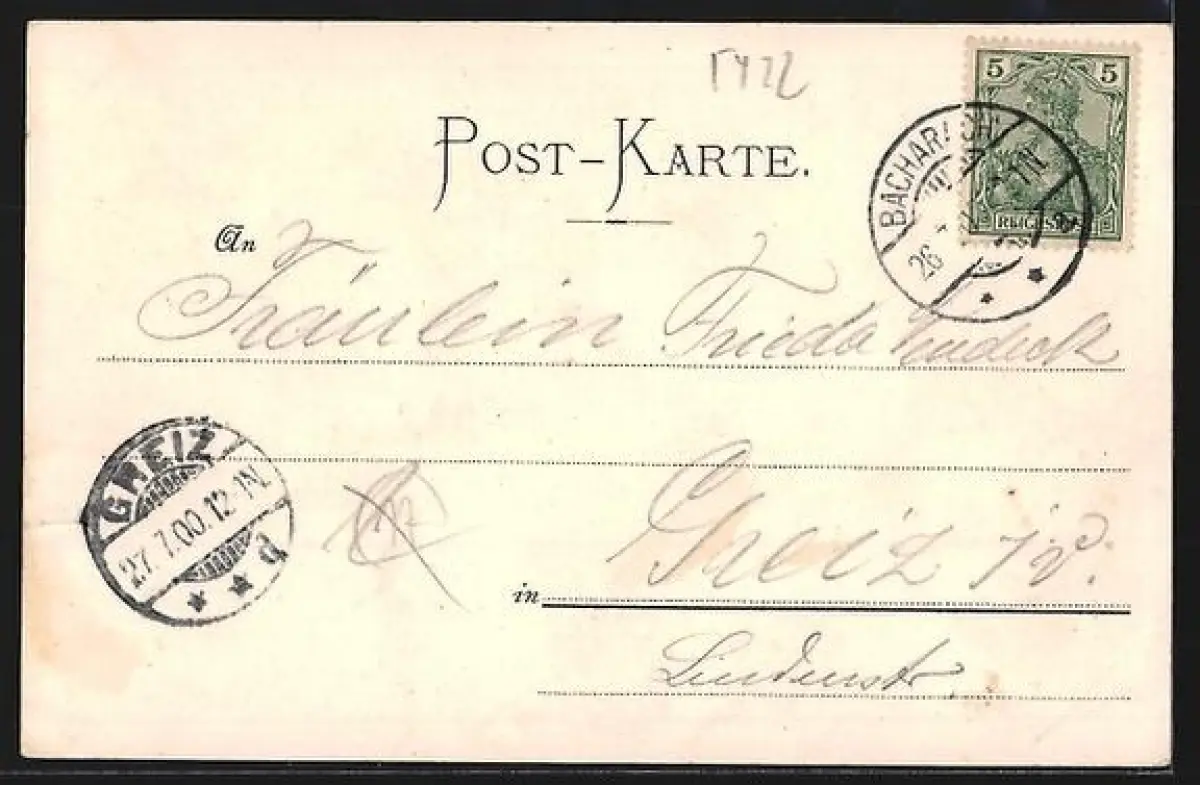 POST-KARTE.
5 5
REICHSPOST
BACHARACH
26
1N.
An Fräulein Frieda
GREIZ
27.7.00.12-1N.
d
in Greiz i/V.
Lindenstr.